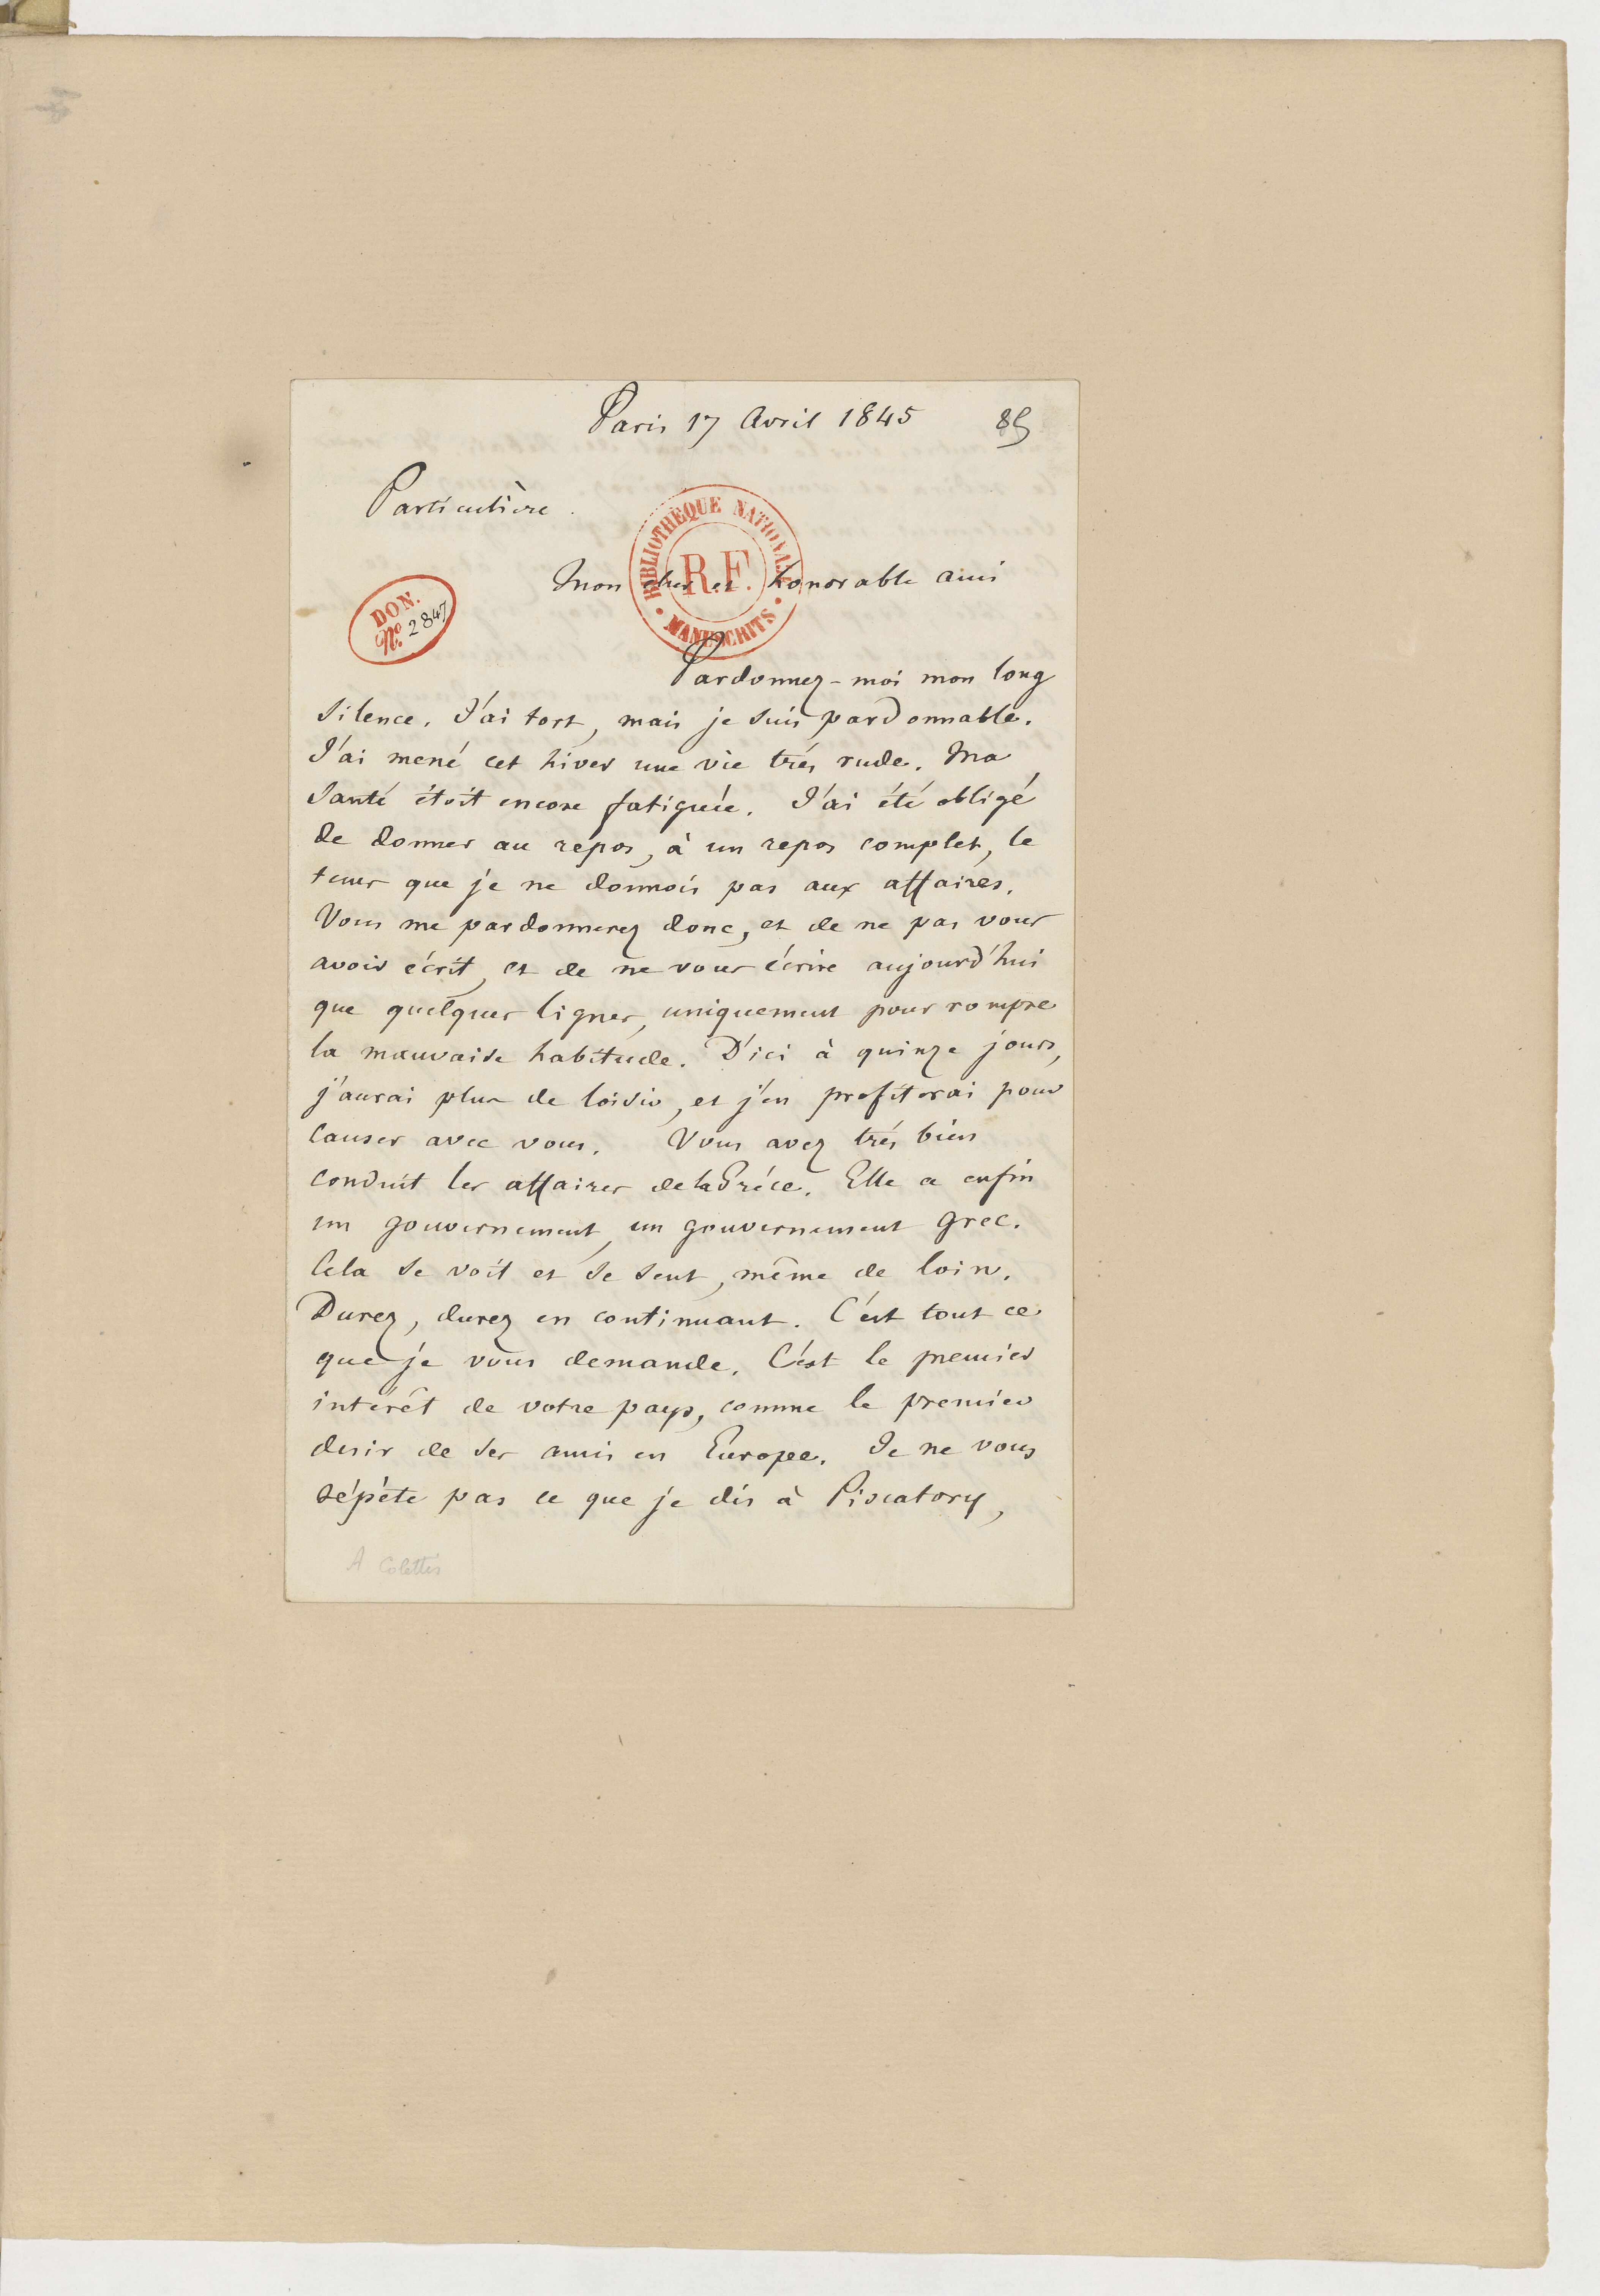 Paris 17 Avril 1845
85
Particulière.
BIBLIOTHÈQUE NATIONALE
R.F.
MANUSCRITS
Mon cher et honorable ami
DON.
No. 2847
Pardonnez-moi mon long
silence. J'ai tort, mais je suis pardonnable.
J'ai mené cet hiver une vie très rude. Ma
santé étoit encore fatiguée. J'ai été obligé
de donner au repos, à un repos complet, le
tems que je ne donnois pas aux affaires.
Vous me pardonnerez donc, et de ne pas vous
avoir écrit, et de ne vous écrire aujourd'hui
que quelques lignes, uniquement pour rompre
la mauvaise habitude. D'ici à quinze jours,
j'aurai plus de loisir, et j'en profiterai pour
causer avec vous. Vous avez très bien
conduit les affaires de la Grèce. Elle a enfin
un gouvernement, un gouvernement grec.
Cela se voit et se sent, même de loin.
Durez, durez en continuant. C'est tout ce
que je vous demande. C'est le premier
intérêt de votre pays, comme le premier
desir de ses amis en Europe. Je ne vous
répète pas ce que je dis à Piscatory,
A Colettis